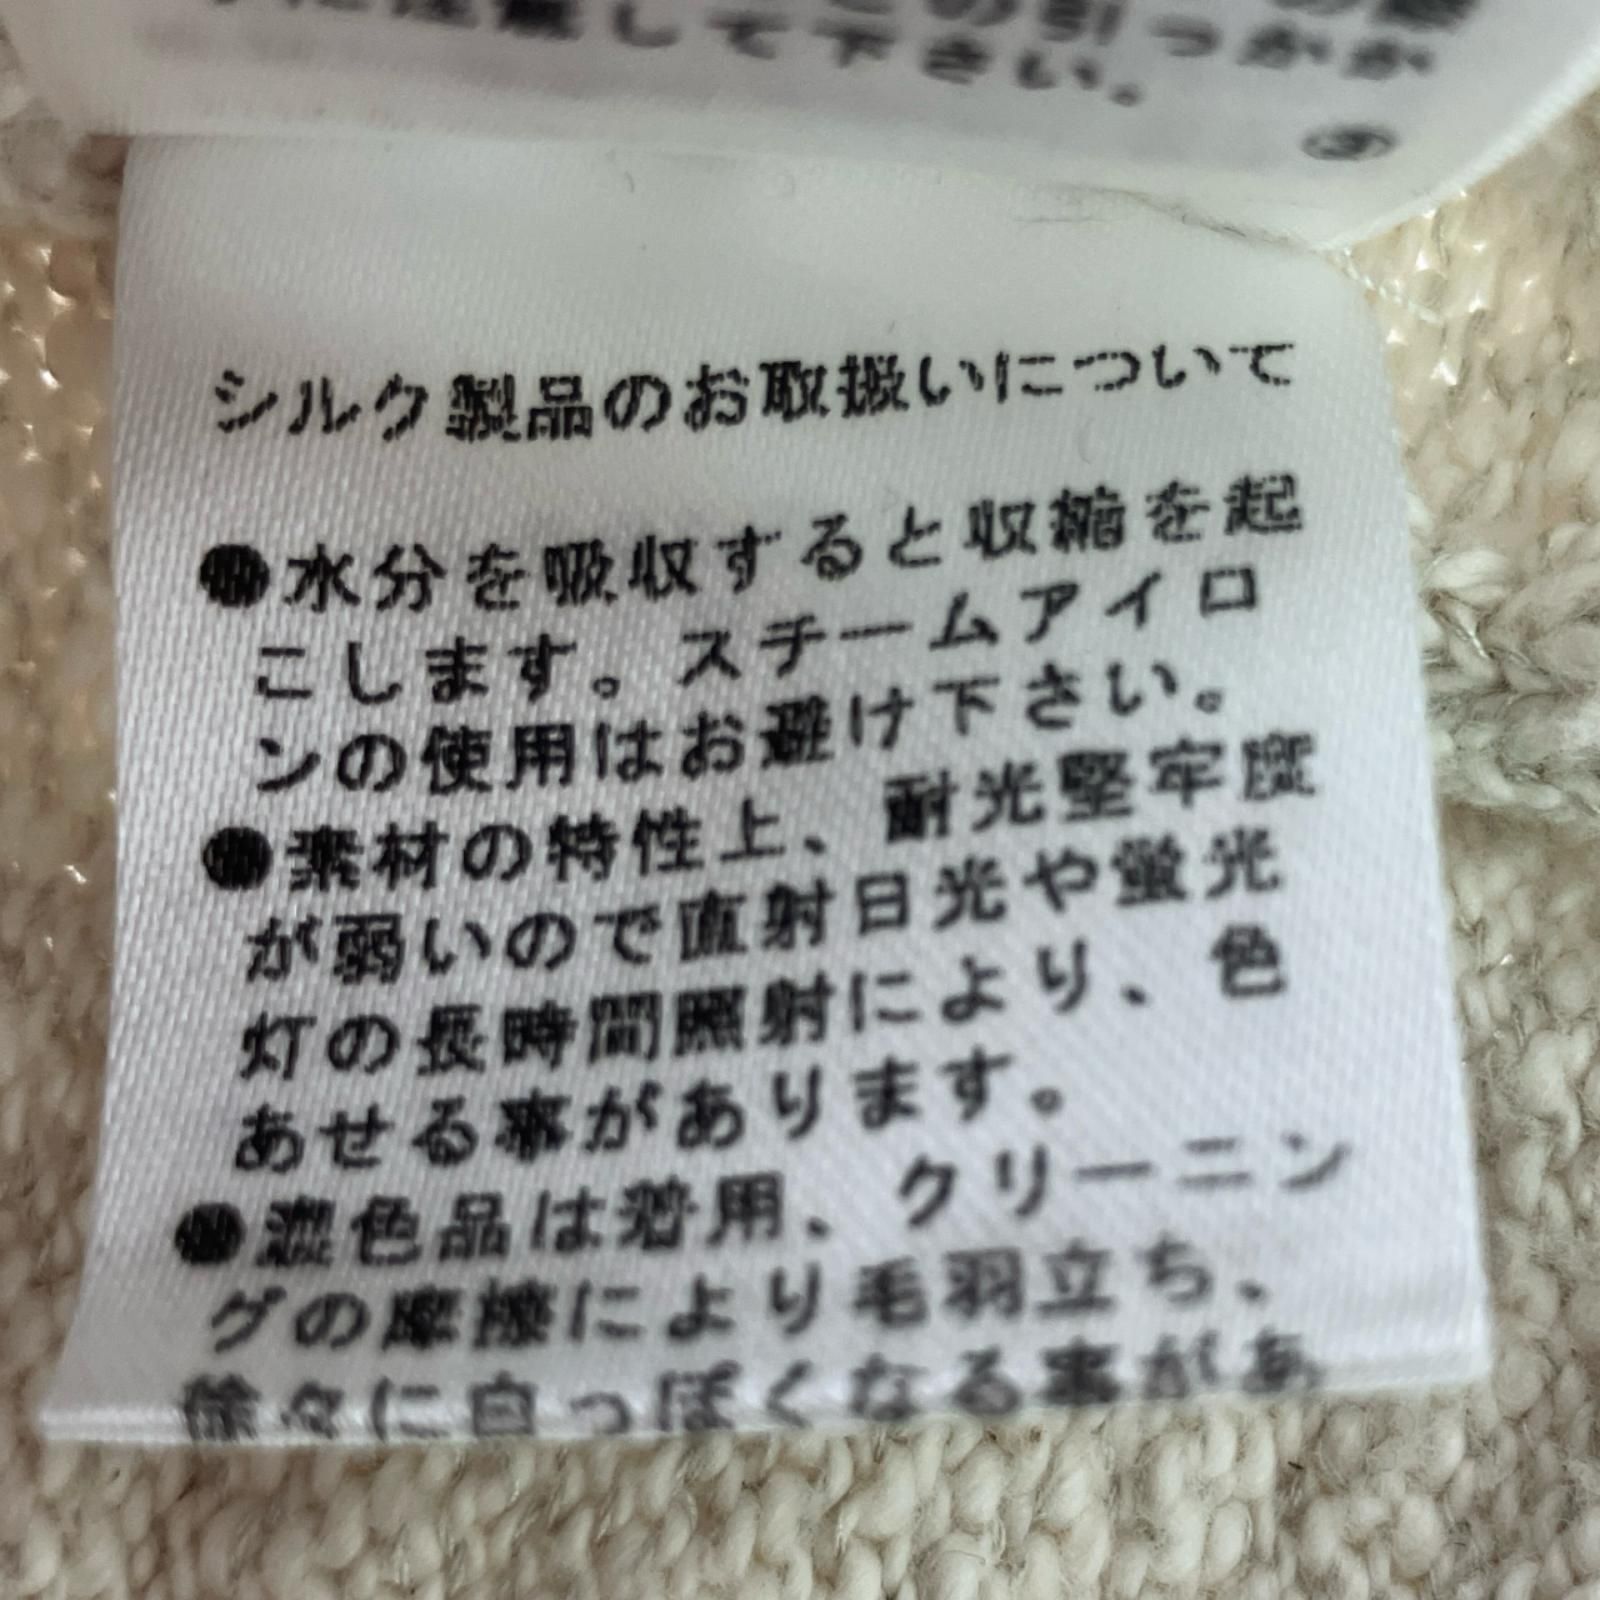 の引っかか
に注意して下さい。
シルク製品のお取扱いについて
●水分を吸収すると収縮を起
こします。スチームアイロ
ンの使用はお避け下さい。
●素材の特性上、耐光堅牢度
が弱いので直射日光や蛍光
灯の長時間照射により、色
あせる事があります。
●濃色品は着用、クリーニン
グの摩擦により毛羽立ち、
徐々に白っぽくなる事があ